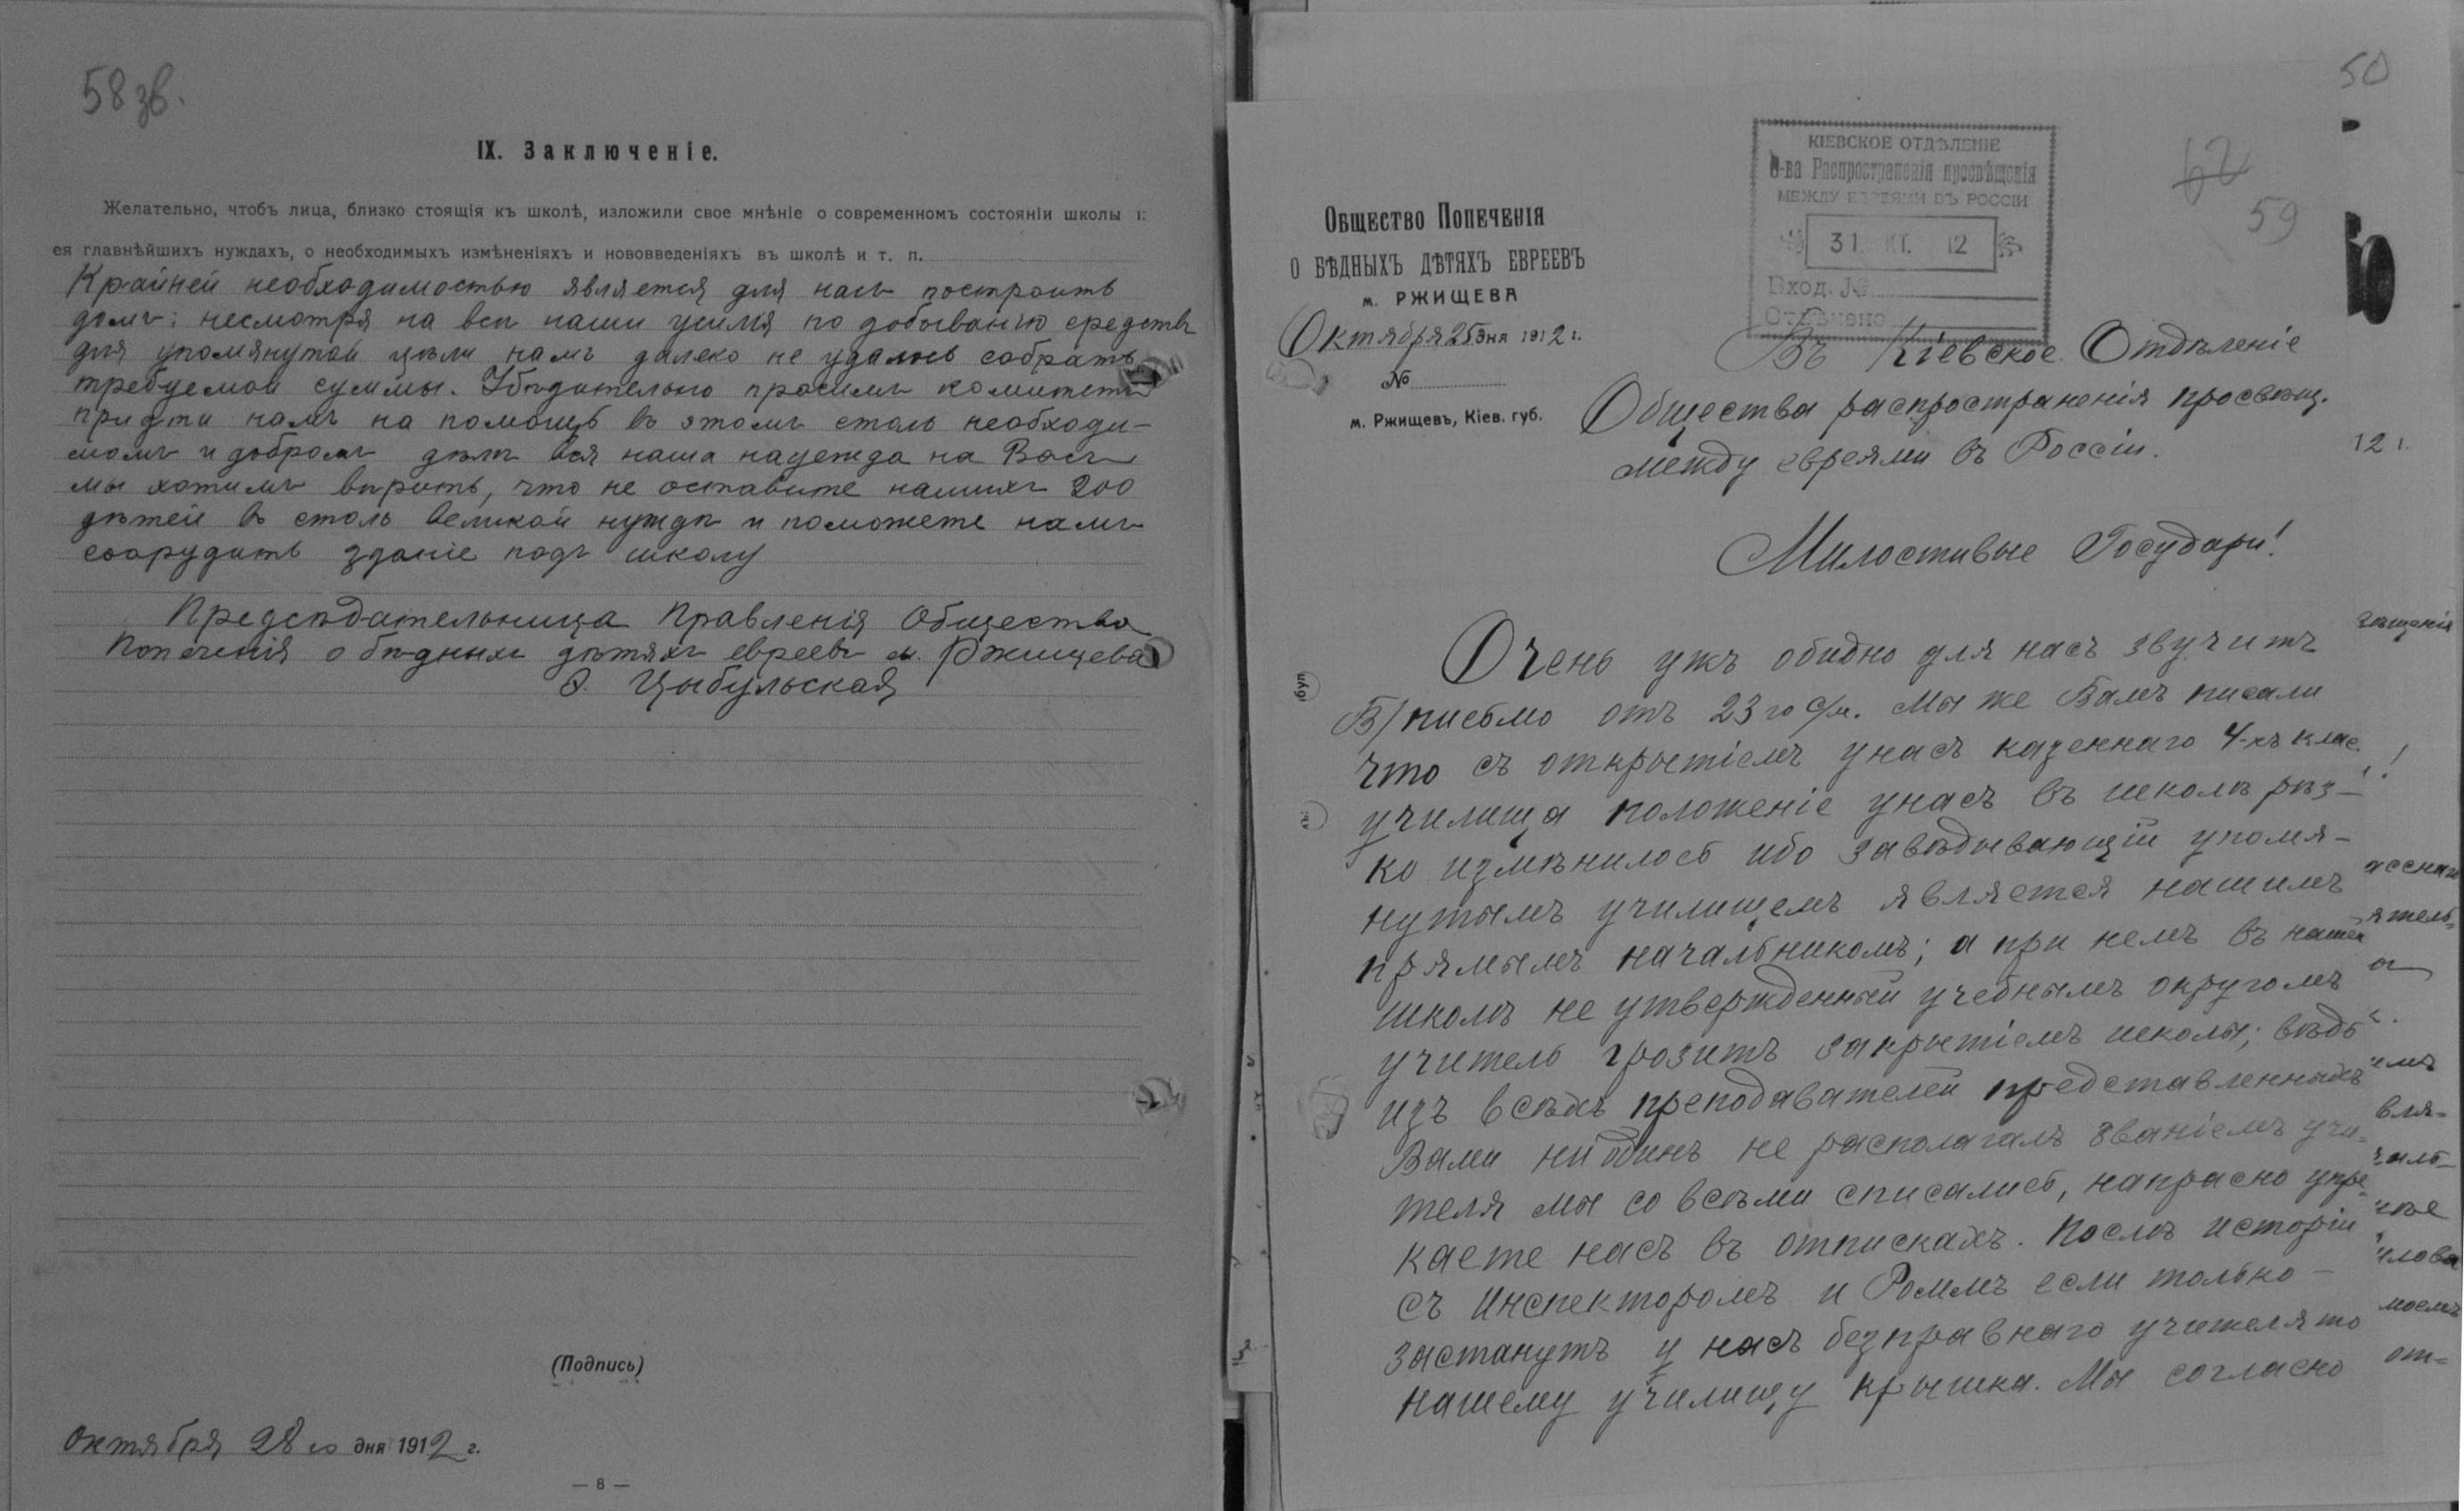 58 зв.
IX. Заключеніе.
Желательно, чтобъ лица, близко стоящія къ школѣ, изложили свое мнѣніе о современномъ состояніи школы и
ея главнѣйшихъ нуждахъ, о необходимыхъ измѣненіяхъ и нововведеніяхъ въ школѣ и т. п.
Крайней необходимостью является для насъ построить
домъ; несмотря на всѣ наши усилія по добыванію средствъ
для упомянутой цѣли намъ далеко не удалось собрать
требуемой суммы. Убѣдительно просимъ комитетъ
придти намъ на помощь въ этомъ столь необходи-
момъ и добромъ дѣлѣ вся наша надежда на Васъ
мы хотимъ вѣрить, что не оставите нашихъ 200
дѣтей въ столь великой нуждѣ и поможете намъ
соорудить зданіе подъ школу
Предсѣдательница Правленія Общества
Попеченія о бѣдныхъ дѣтяхъ евреевъ м. Ржищева
Цыбульская
(Подпись)
Октября 28 го дня 1912 г.
— 8 —
50
62
59
КІЕВСКОЕ ОТДѢЛЕНІЕ
О-ва Распространенія просвѣщенія
МЕЖДУ ЕВРЕЯМИ ВЪ РОССІИ
31 КТ. 12
Вход. №
Отвѣчено
Общество Попеченія
О БѢДНЫХЪ ДѢТЯХЪ ЕВРЕЕВЪ
м. РЖИЩЕВА
Октября 25 дня 1912 г.
№
м. Ржищевъ, Кіев. губ.
Въ Кіевское Отдѣленіе
Общества распространенія просвѣщ.
между евреями въ Россіи.
12 г.
Милостивые Государи!
Очень ужъ обидно для насъ звучитъ
В/ письмо отъ 23 го с/м. Мы же Вамъ писали
что съ открытіемъ у насъ казеннаго 4-хъ клас.
училища положеніе у насъ въ школѣ рѣз-
ко измѣнилось ибо завѣдывающій упомя-
нутымъ училищемъ является нашимъ
прямымъ начальникомъ; а при немъ въ нашей
школѣ не утвержденный учебнымъ округомъ
учитель грозитъ закрытіемъ школы; вѣдь
изъ всѣхъ преподавателей представленныхъ
Вами ни одинъ не располагалъ званіемъ учи-
теля мы со всѣми списались, напрасно упре-
каете насъ въ отпискахъ. Послѣ исторіи
съ Инспекторомъ и Роммъ если только
застанутъ у насъ безправнаго учителя то
нашему училищу крышка. Мы согласно